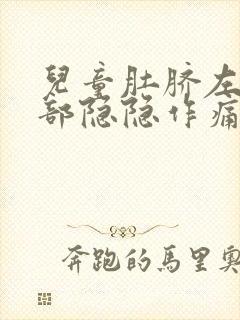 兒童肚脐左
部隐隐作痛
奔跑的馬里奥